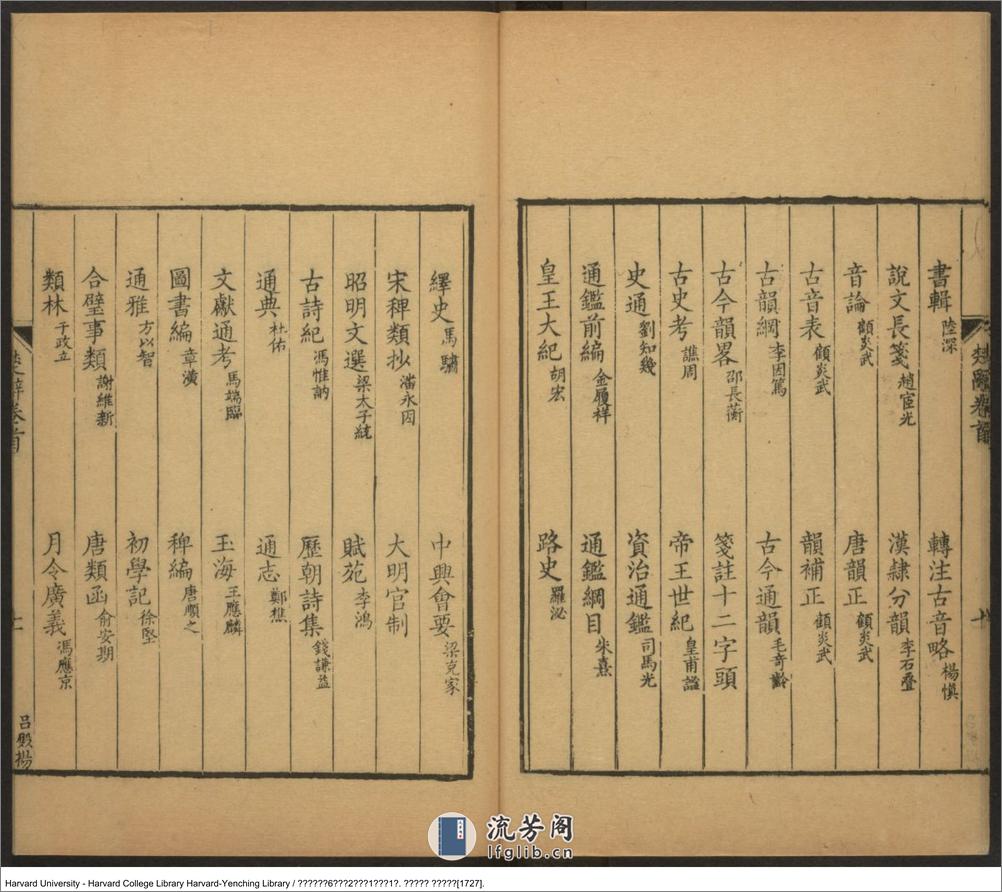 書輯 陸深 轉注古音略 楊慎
說文長箋 趙宧光 漢隸分韻 李石疊
音論 顧炎武 唐韻正 顧炎武
古音表 顧炎武 韻補正 顧炎武
古韻綱 李因篤 古今通韻 毛奇齡
古今韻畧 邵長蘅 箋註十二字頭
古史考 譙周 帝王世紀 皇甫謐
史通 劉知幾 資治通鑑 司馬光
通鑑前編 金履祥 通鑑綱目 朱熹
皇王大紀 胡宏 路史 羅泌
繹史 馬驌 中興會要 梁克家
宋稗類抄 潘永因 大明官制
昭明文選 梁太子統 賦苑 李鴻
古詩紀 馮惟訥 歷朝詩集 錢謙益
通典 杜佑 通志 鄭樵
文獻通考 馬端臨 玉海 王應麟
圖書編 章潢 稗編 唐順之
通雅 方以智 初學記 徐堅
合璧事類 謝維新 唐類函 俞安期
類林 于政立 月令廣義 馮應京
楚辭卷首
呂殿揚
流芳阁
lfglib.cn
Harvard University - Harvard College Library Harvard-Yenching Library / ??????6???2???1???1?. ????? ?????[1727].